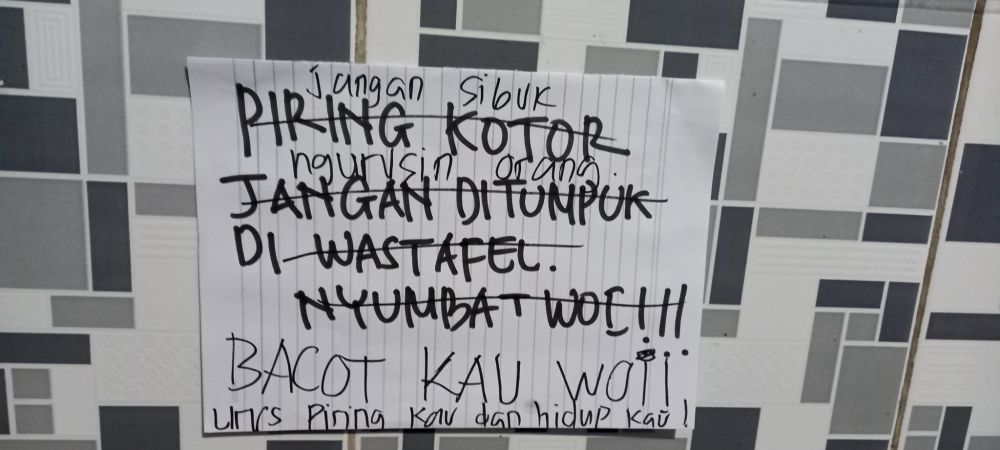 jangan sibuk
PIRING KOTOR
ngurusin orang.
JANGAN DITUMPUK
DI WASTAFEL.
NYUMBAT WOI!!!
BACOT KAU WOii
Urus Piring kau dan hidup kau!